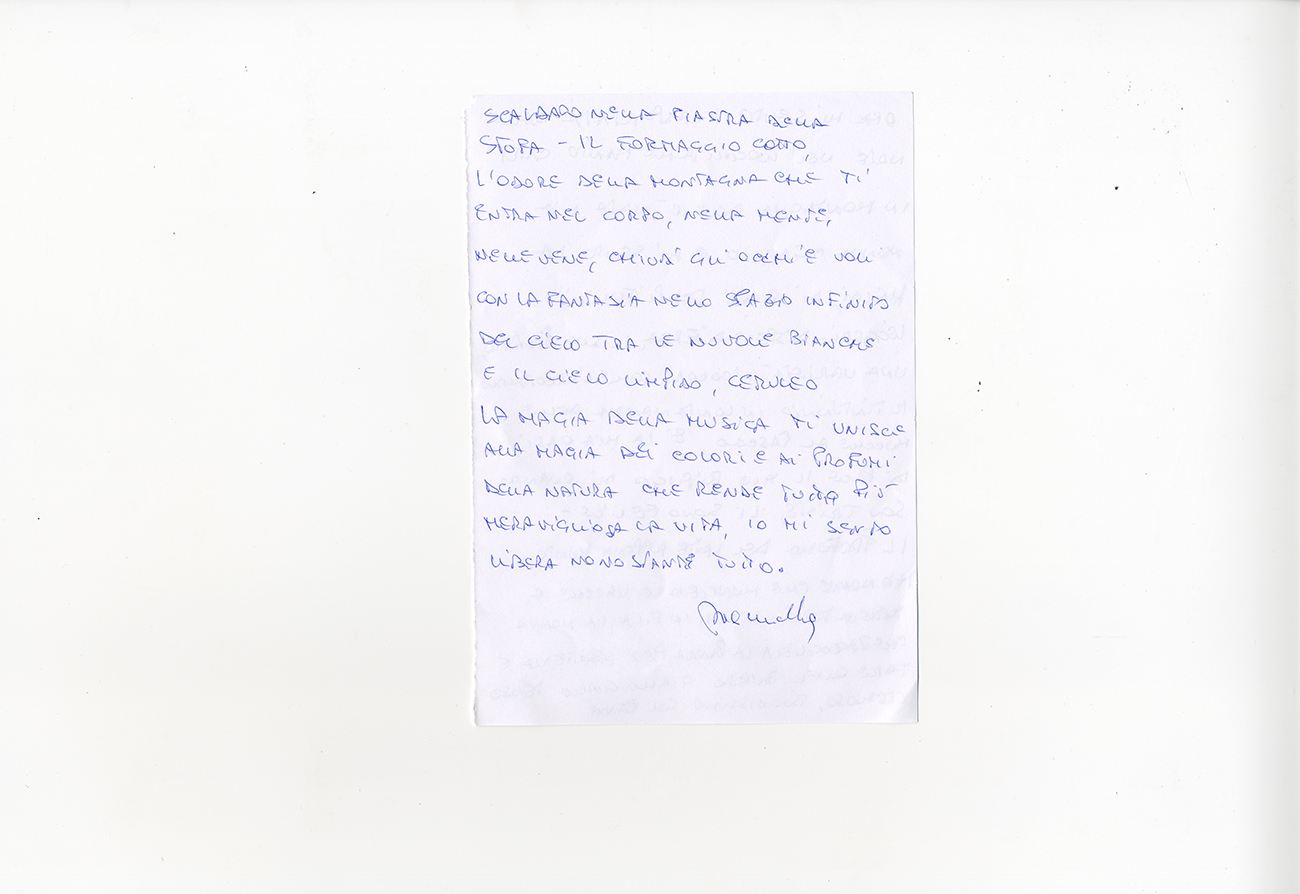 SCALDATO NELLA PIASTRA DELLA
STUFA - IL FORMAGGIO COTTO,
L'ODORE DELLA MONTAGNA CHE TI
ENTRA NEL CORPO, NELLA MENTE,
NELLE VENE, CHIUDI GLI OCCHI E VOLI
CON LA FANTASIA NELLO SPAZIO INFINITO
DEL CIELO TRA LE NUVOLE BIANCHE
E IL CIELO LIMPIDO, CERULEO
LA MAGIA DELLA MUSICA TI UNISCE
ALLA MAGIA DEI COLORI E AI PROFUMI
DELLA NATURA CHE RENDE TUTTO PIÙ
MERAVIGLIOSA LA VITA, IO MI SENTO
LIBERA NONOSTANTE TUTTO.